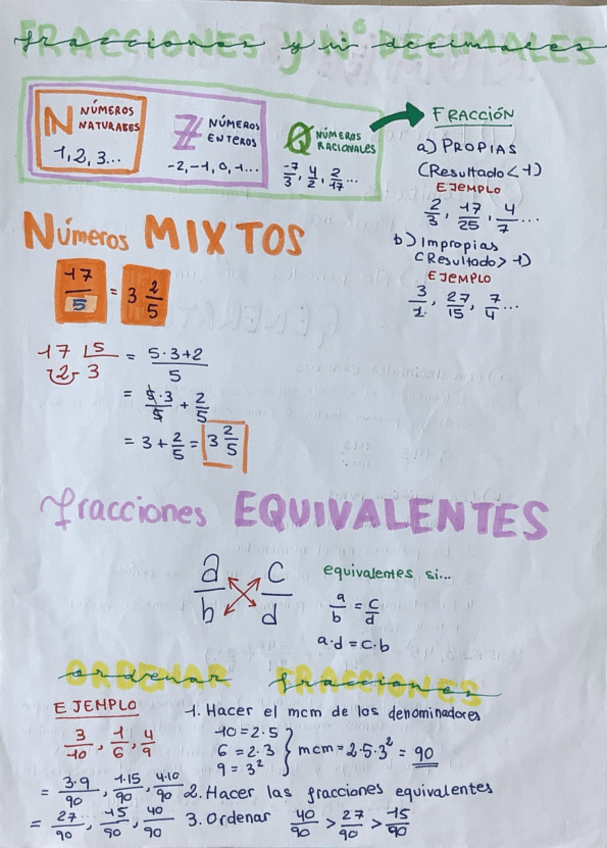 FRACCIONES Y Nº DECIMALES
fracciones y nº decimales
N NÚMEROS NATURALES
1, 2, 3...
Z NÚMEROS ENTEROS
-2, -1, 0, 1...
Q NÚMEROS RACIONALES
-7/3, 4/2, 2/17...
FRACCIÓN
a) PROPIAS
(Resultado < 1)
EJEMPLO
2/3, 17/25, 4/7...
b) Impropias
(Resultado > 1)
EJEMPLO
3/1, 27/15, 7/4...
Números MIXTOS
17/5 = 3 2/5
17 |5 = 5·3+2/5
2 3
= 5·3/5 + 2/5
= 3 + 2/5 = 3 2/5
fracciones EQUIVALENTES
a/b c/d
equivalentes si...
a/b = c/d
a·d = c·b
ORDENAR FRACCIONES
ordenar fracciones
EJEMPLO
3/10, 1/6, 4/9
1. Hacer el mcm de los denominadores
10 = 2·5
6 = 2·3
9 = 3²
} mcm = 2·5·3² = 90
= 3·9/90, 1·15/90, 4·10/90
2. Hacer las fracciones equivalentes
= 27/90, 15/90, 40/90
3. Ordenar 40/90 > 27/90 > 15/90